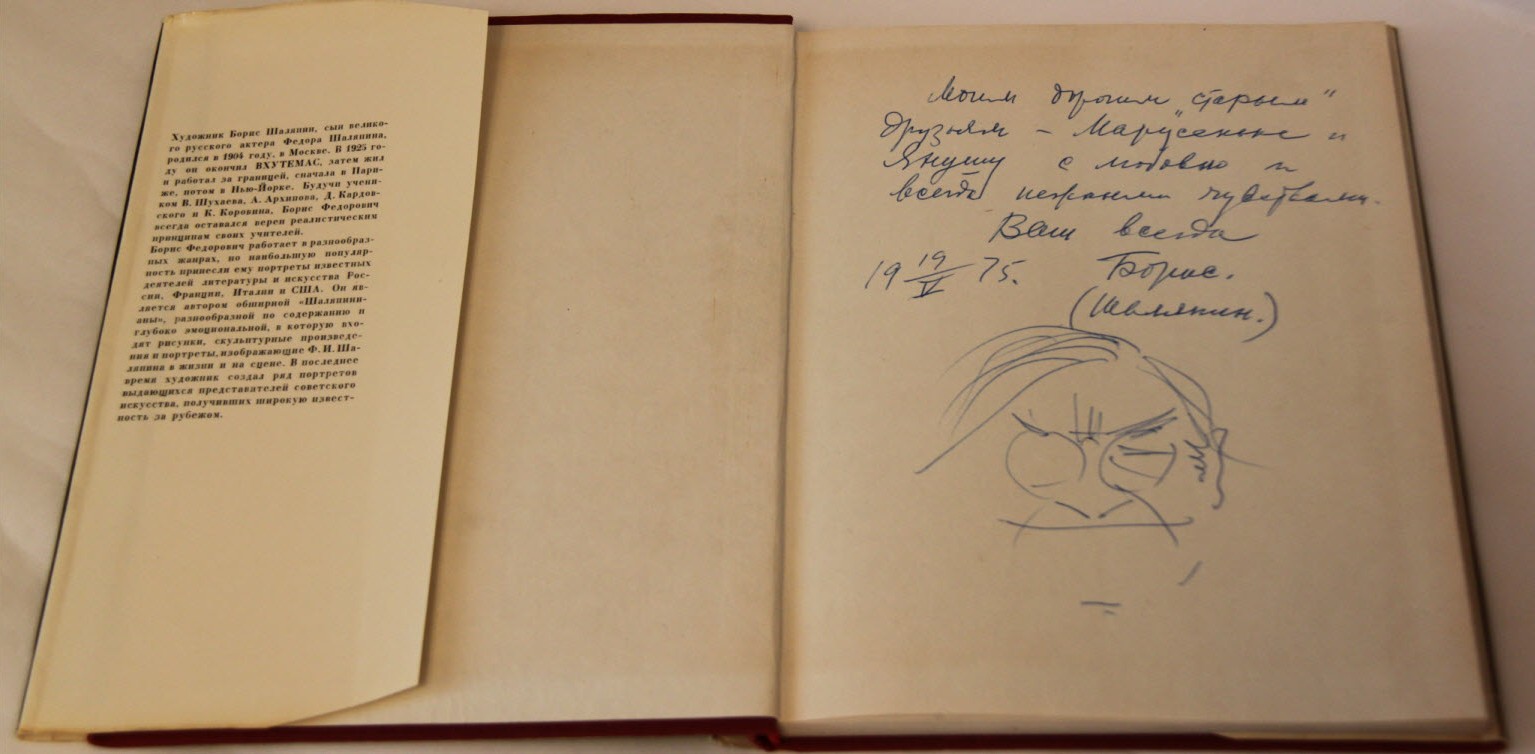 Художник Борис Шаляпин, сын велико-
го русского актера Федора Шаляпина,
родился в 1904 году, в Москве. В 1925 го-
ду он окончил ВХУТЕМАС, затем жил
и работал за границей, сначала в Пари-
же, потом в Нью-Йорке. Будучи учени-
ком В. Шухаева, А. Архипова, Д. Кардов-
ского и К. Коровина, Борис Федорович
всегда оставался верен реалистическим
принципам своих учителей.
Борис Федорович работает в разнообраз-
ных жанрах, но наибольшую популяр-
ность принесли ему портреты известных
деятелей литературы и искусства Рос-
сии, Франции, Италии и США. Он яв-
ляется автором обширной «Шаляпини-
аны», разнообразной по содержанию и
глубоко эмоциональной, в которую вхо-
дят рисунки, скульптурные произведе-
ния и портреты, изображающие Ф. И. Ша-
ляпина в жизни и на сцене. В последнее
время художник создал ряд портретов
выдающихся представителей советского
искусства, получивших широкую извест-
ность за рубежом.
Моим дорогим „старым"
друзьям – Марусеньке и
Янушу с любовью и
всегда нежными чувствами.
Ваш всегда
19 19/V 75. Борис.
(Шаляпин.)